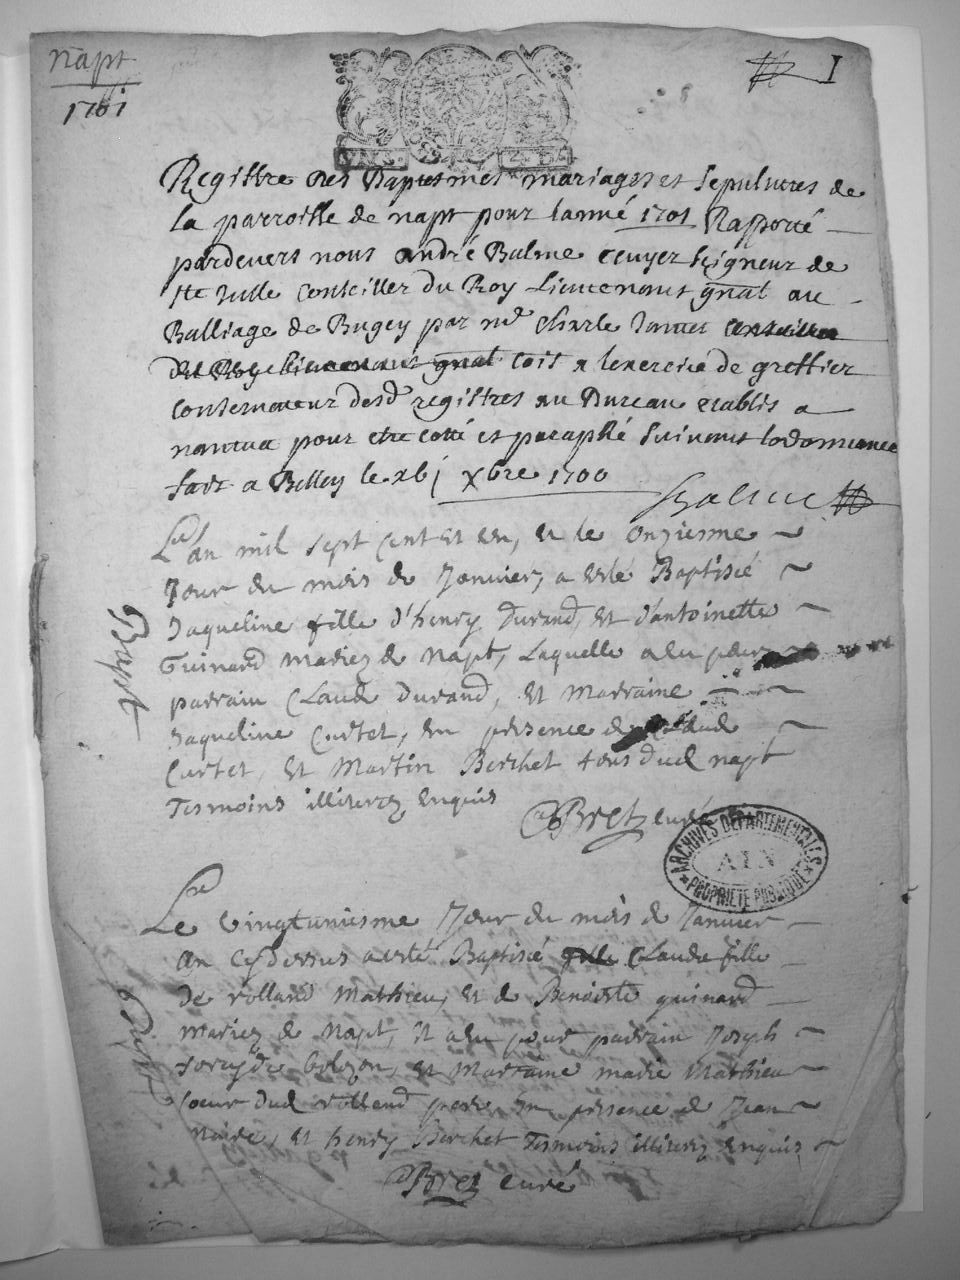 napt
1701
I
Registre des Baptesmes mariages et sepultures de
la parroisse de napt pour lanné 1701 Rapporté
pardevers nous andré Balme ecuyer seigneur de
Ste Julle conseiller du Roy Lieutenant gnal au
Balliage de Bugey par mr charle
du Roy lieutenant gnal coit a lexercice de greffier
conservateur desd registres au Bureau etablis a
nantua pour etre cotté et paraphé suivant lordonnance
fait a Belley le xbj xbre 1700
Balme
Bapt
L'an mil sept cent et un, et le onziesme
Jour du mois de Janvier, a esté Baptisé
Jaqueline fille d'henry Durand, et d'antoinette
Guinard mariez de Napt, Laquelle a eu pour
parrain Claude Durand, et Marraine
Jaqueline Curtet, en presence de Claude
Curtet, et Martin Berchet tous dud napt
Tesmoins illiterez enquis
Bretz curé
ARCHIVES DEPARTEMENTALES
AIN
PROPRIETE PUBLIQUE
Bapt
Le vingtuniesme Jour du mois de Janvier
an cy dessus a esté Baptisé Claude fille
de rolland Mathieu, et de Benoiste guinard
mariez de Napt, et a eu pour parrain Joseph
bolozon, et Marraine marie Mathieu
soeur dud rolland pere, en presence de Jean
et henry Berchet Tesmoins illiterez enquis
Bretz curé